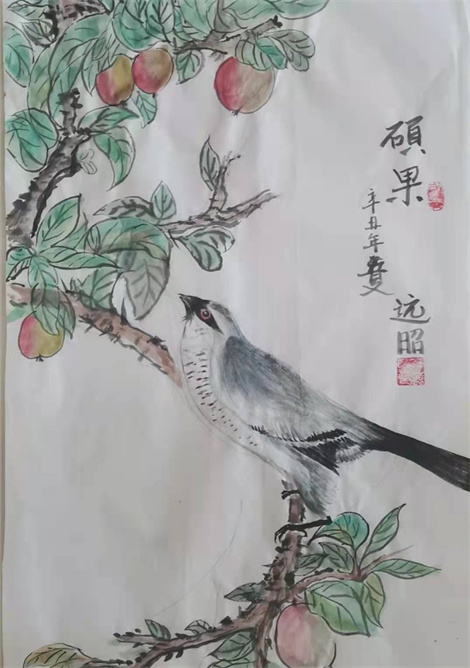 碩果
辛丑年夏
远昭